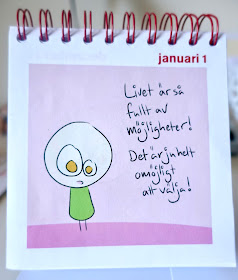 januari 1
Livet är så
fullt av
möjligheter!
Det är ju helt
omöjligt
att välja!